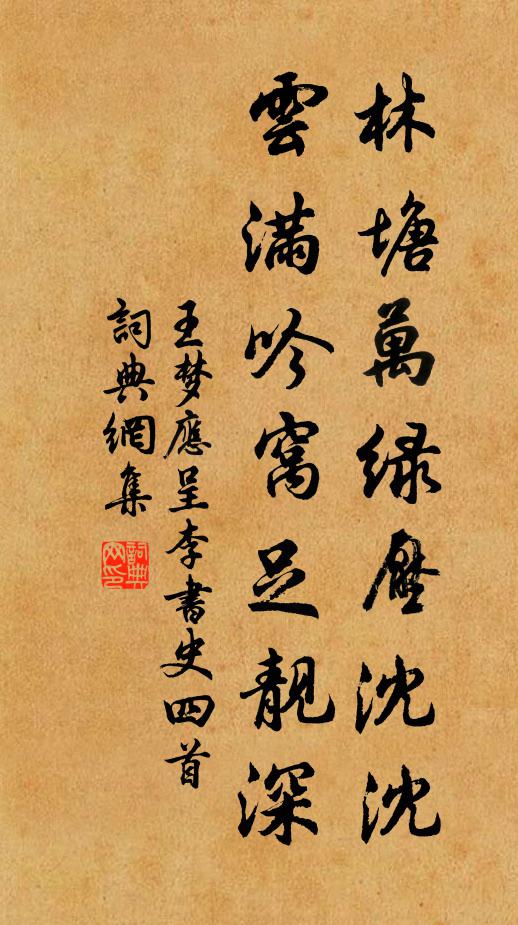 林塘萬綠壓沈沈
雲滿吟窩足靚深
王梦應呈李書史四首
詞典網集
詞典網印